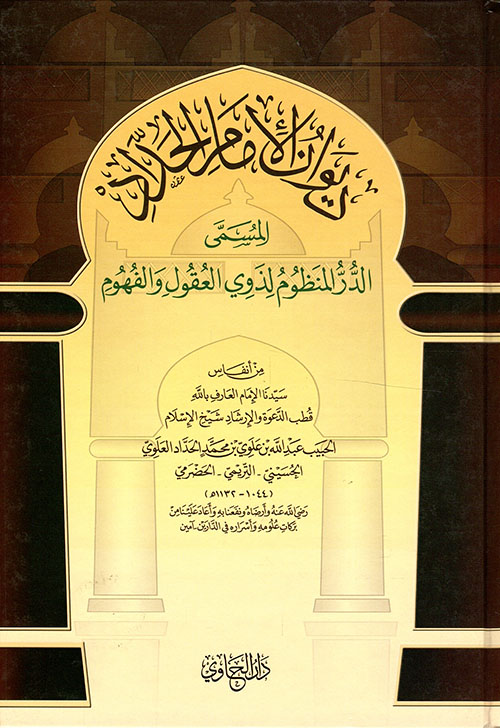 ديوان الإمام الحداد
المسمى
الدُّرُّ المنظُومُ لِذَوِي العُقُولِ وَالفُهُومِ
مِنْ أنفَاس
سَيّدنَا الإمَام العَارف بالله
قُطب الدَّعوَة والإرشَاد شَيْخ الإسْلَام
الحَبيب عَبدالله بن عَلوي بن محمَّد الحَدّاد العَلَوي
الحُسَيْني - التَّريمي - الحَضرَمي
(١٠٤٤ - ١١٣٢هـ)
رَضيَ الله عَنهُ وأَرضَاهُ ونفَعنَا به وَأعَادَ عَلَيْنَا مِنْ
بَركَاتِ عُلُومِهِ وَأسْرَارِه في الدَّارَين - آمين
دَارُ الحَاوِي